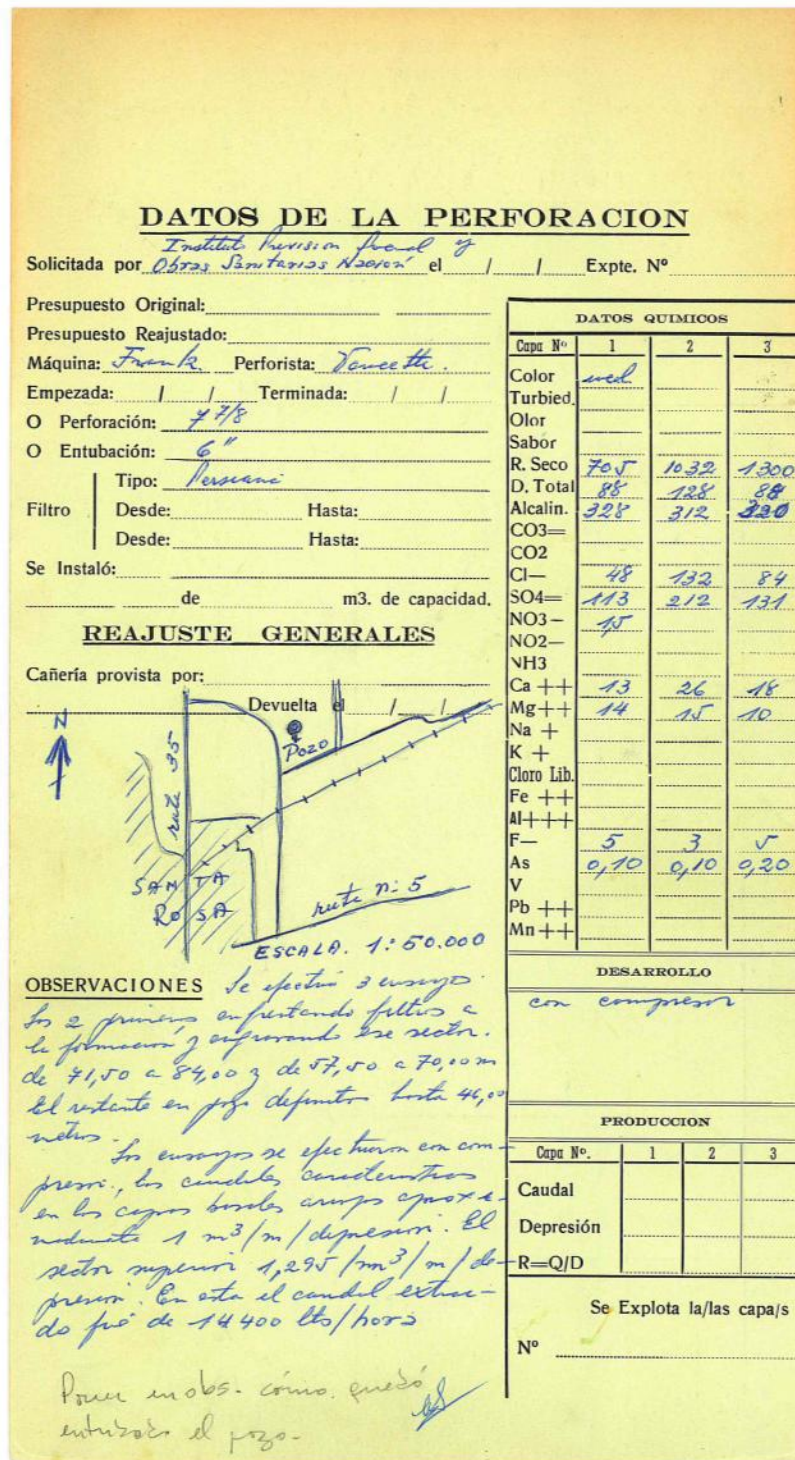 DATOS DE LA PERFORACION
Instituto Prevision Social y
Solicitada por Obras Sanitarias Nación el / / Expte. Nº
Presupuesto Original:
Presupuesto Reajustado:
Máquina: Frank Perforista:
Empezada: / / Terminada: / /
O Perforación: 7 7/8
O Entubación: 6"
Tipo: Persiana
Filtro Desde: Hasta:
Desde: Hasta:
Se Instaló:
de m3. de capacidad.
REAJUSTE GENERALES
Cañería provista por:
Devuelta el / /
N
ruta 35
Pozo
SANTA
ROSA
ruta nº 5
ESCALA. 1:50.000
OBSERVACIONES Se efectuó 3 ensayos.
Los 2 primeros enfrentando filtros a
la formación y engravando ese sector.
de 71,50 a 84,00 y de 57,50 a 70,00 m
El restante en pozo definitivo hasta 46,00
metros.
Los ensayos se efectuaron con com-
presor, los caudales característicos
en las capas basales aproxi-
madamente 1 m3/m/depresión. El
sector superior 1,295/m3/m/de-
presión. En esta el caudal extraí-
do fué de 14400 lts/hora
Poner en obs. cómo quedó
entubado el pozo.
DATOS QUIMICOS
Capa Nº 1 2 3
Color
Turbied.
Olor
Sabor
R. Seco 705 1032 1300
D. Total 88 128 88
Alcalin. 328 312 320
CO3=
CO2
Cl— 48 132 84
SO4= 113 212 131
NO3— 15
NO2—
NH3
Ca ++ 13 26 18
Mg++ 14 15 10
Na +
K +
Cloro Lib.
Fe ++
Al+++
F— 5 3 5
As 0,10 0,10 0,20
V
Pb ++
Mn ++
DESARROLLO
con compresor
PRODUCCION
Capa Nº. 1 2 3
Caudal
Depresión
R=Q/D
Se Explota la/las capa/s
Nº